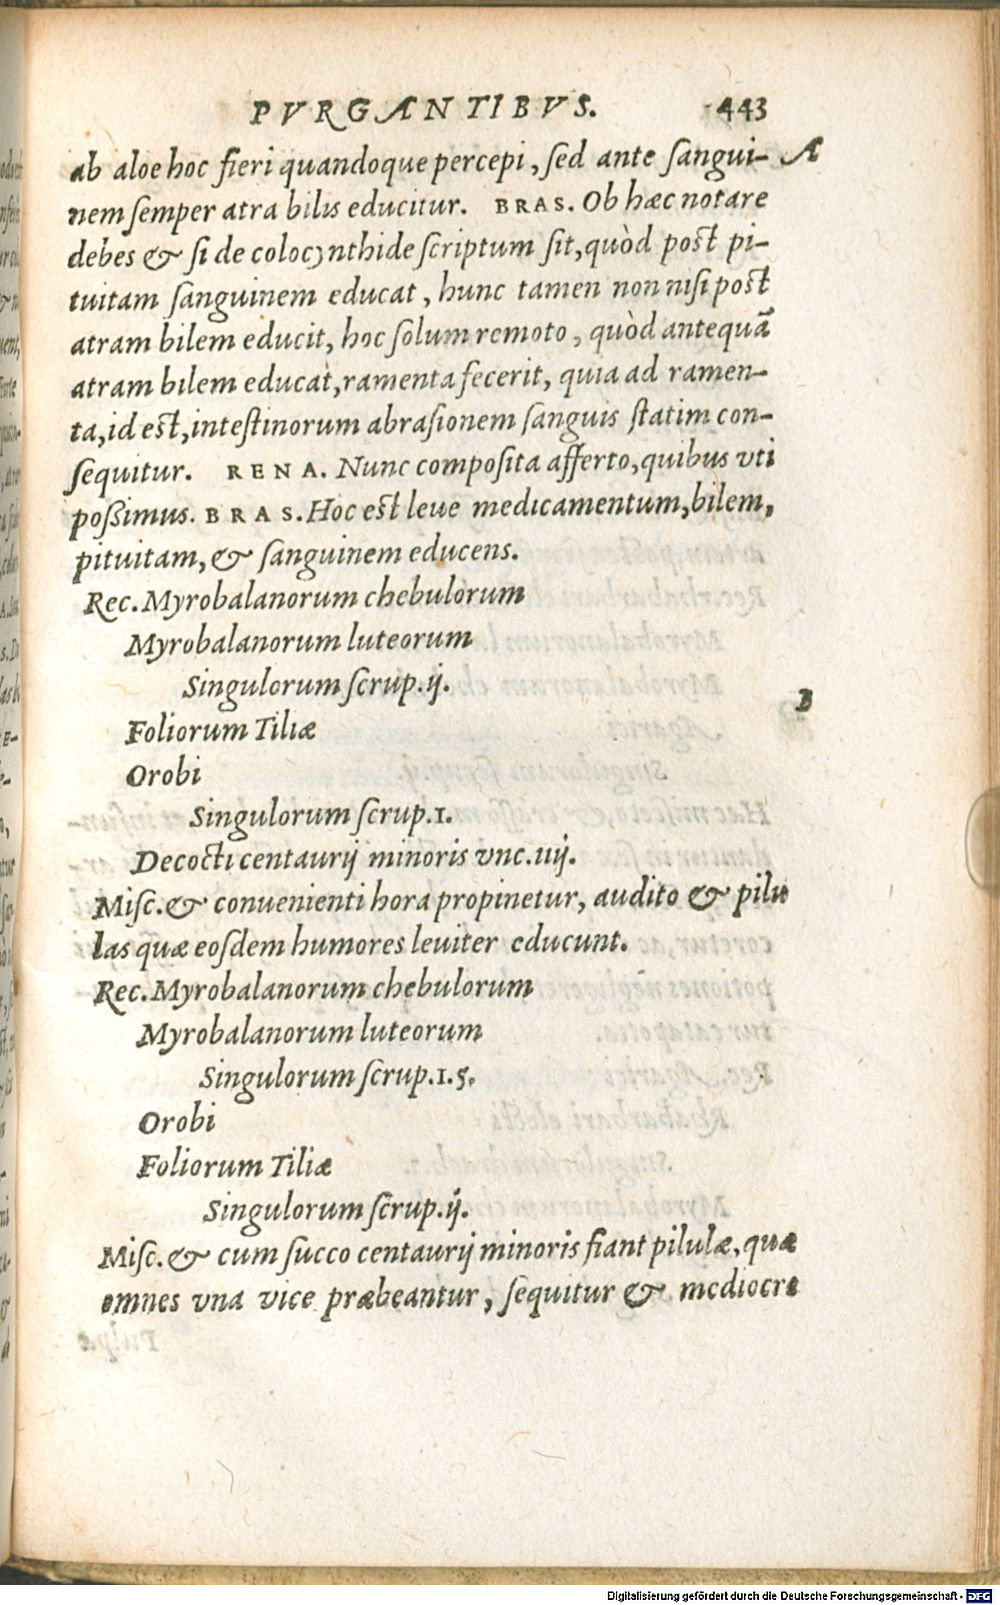 PVRGANTIBVS. 443
ab aloe hoc fieri quandoque percepi, sed ante sangui- A
nem semper atra bilis educitur. BRAS. Ob hæc notare
debes & si de colocynthide scriptum sit, quòd post pi-
tuitam sanguinem educat, hunc tamen non nisi post
atram bilem educit, hoc solum remoto, quòd antequã
atram bilem educat, ramenta fecerit, quia ad ramen-
ta, id est, intestinorum abrasionem sanguis statim con-
sequitur. RENA. Nunc composita afferto, quibus vti
possimus. BRAS. Hoc est leue medicamentum, bilem,
pituitam, & sanguinem educens.
Rec. Myrobalanorum chebulorum
Myrobalanorum luteorum
Singulorum scrup.ij.
B
Foliorum Tiliæ
Orobi
Singulorum scrup.1.
Decocti centaurij minoris vnc.iiij.
Misc. & conuenienti hora propinetur, audito & pilu
las quæ eosdem humores leuiter educunt.
Rec. Myrobalanorum chebulorum
Myrobalanorum luteorum
Singulorum scrup.1.5.
Orobi
Foliorum Tiliæ
Singulorum scrup.ij.
Misc. & cum succo centaurij minoris fiant pilulæ, quæ
omnes vna vice præbeantur, sequitur & mediocre
Digitalisierung gefördert durch die Deutsche Forschungsgemeinschaft - DFG